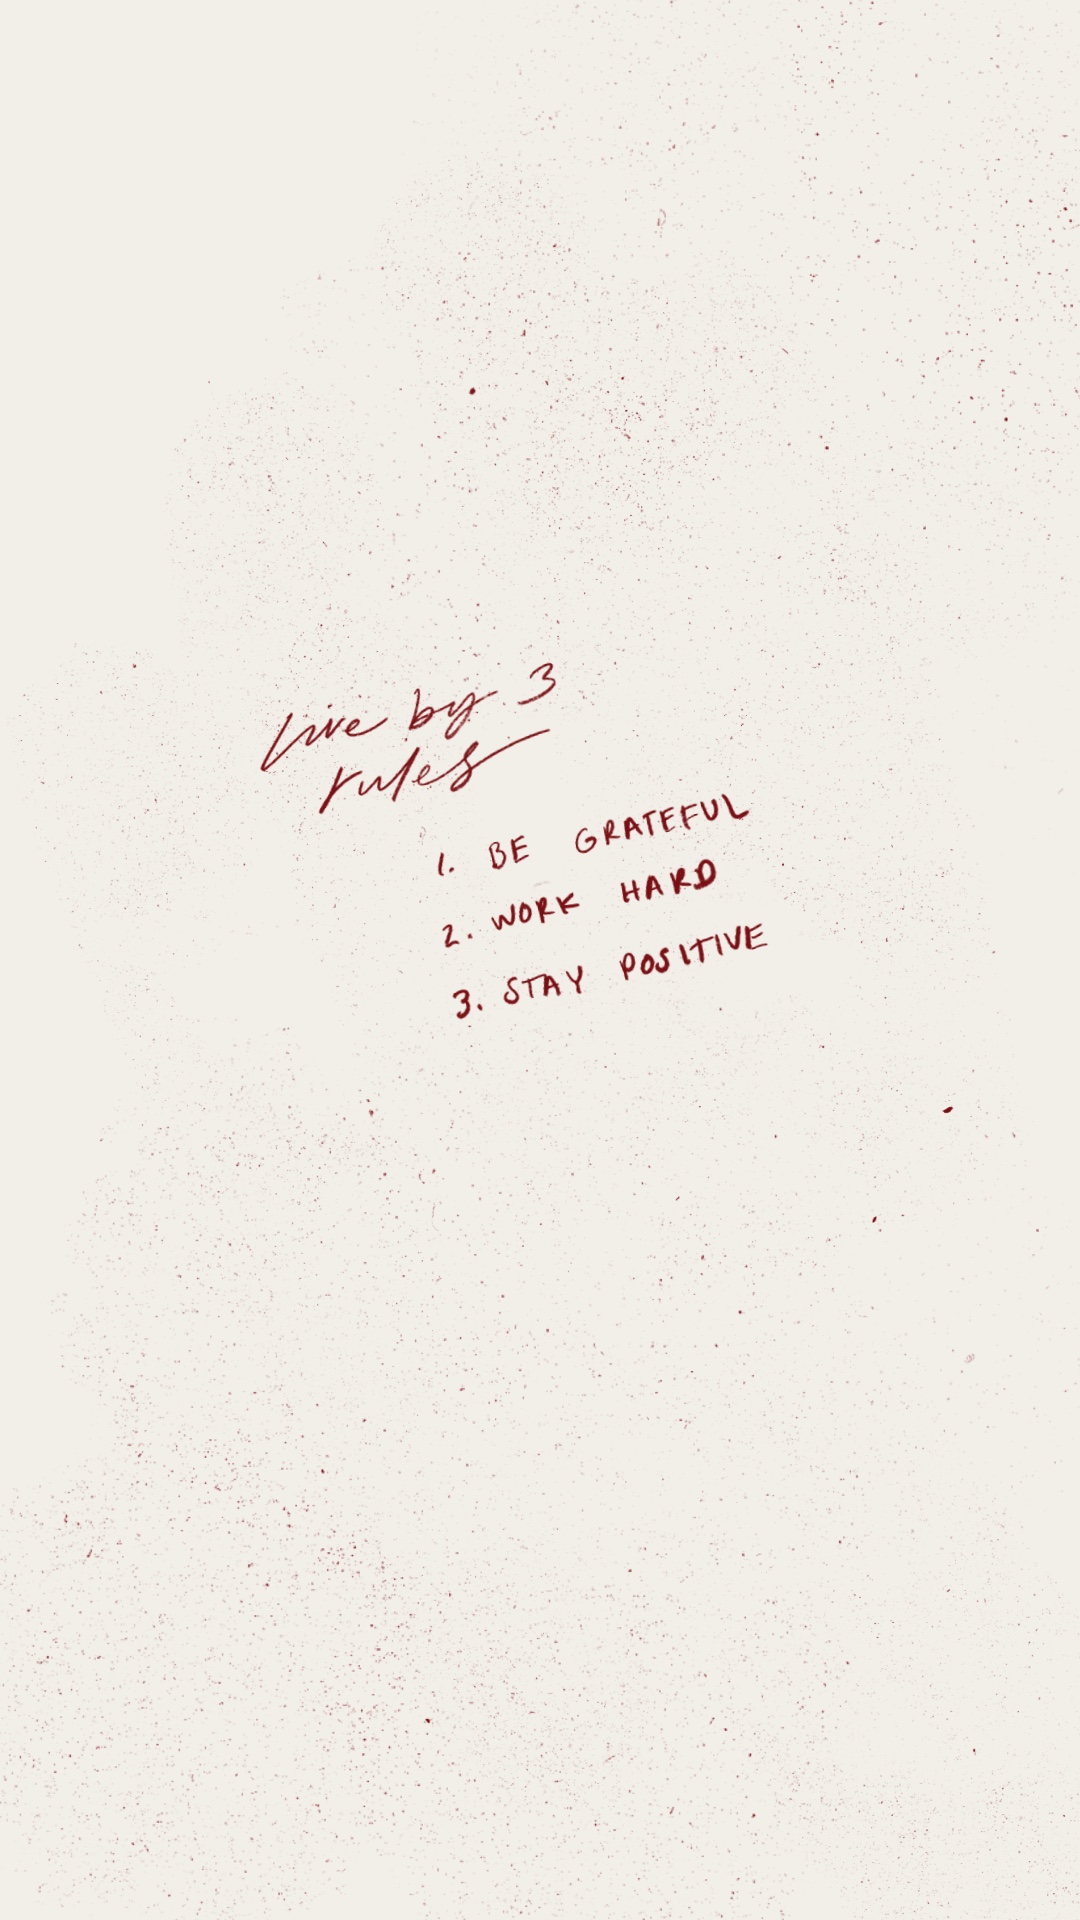 Live by 3
rules
1. BE GRATEFUL
2. WORK HARD
3. STAY POSITIVE